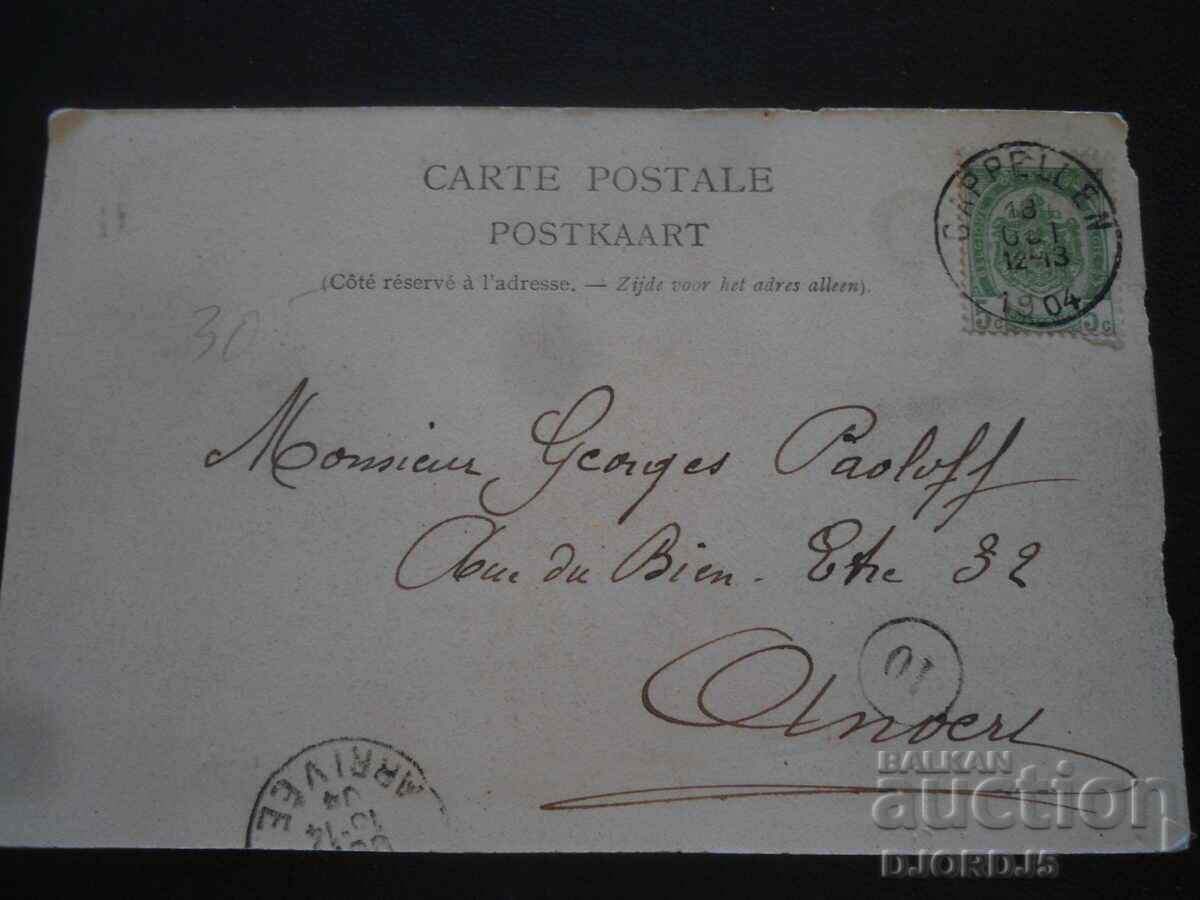 CARTE POSTALE
POSTKAART
(Côté réservé à l'adresse. — Zijde voor het adres alleen).
CAPPELLEN
18
OCT
12-13
1904
5c 5c
30
Monsieur Georges Paoloff
Rue du Bien-Etre 32
Anvers
10
ARRIVÉE
04
13-14
BALKAN
auction
DJORDJ5